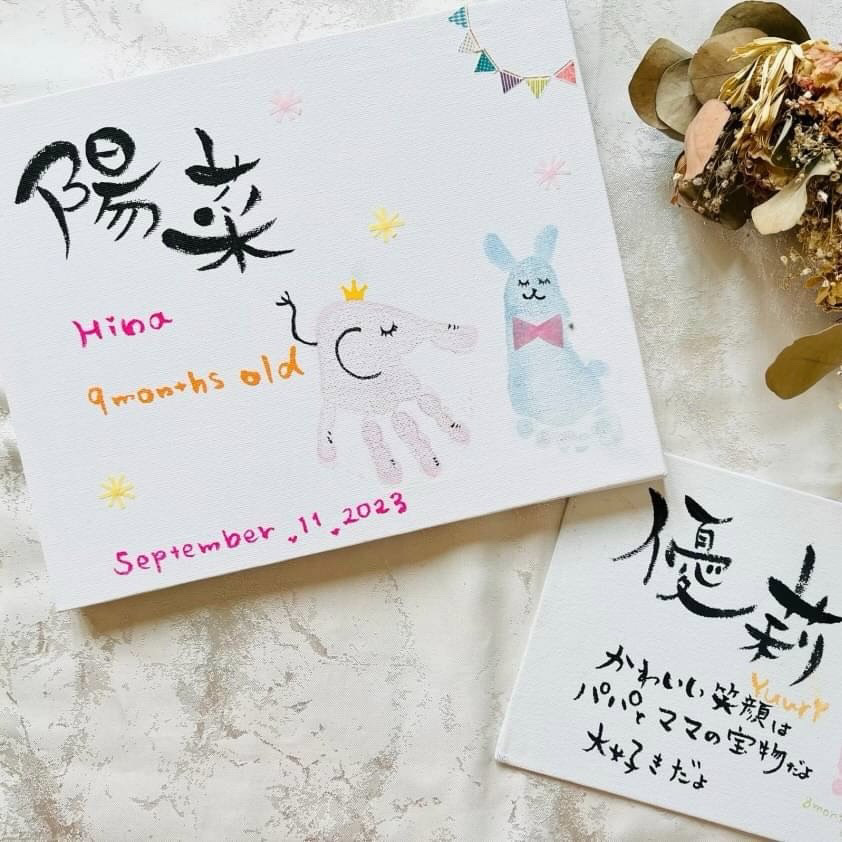 陽菜
Hina
9months old
September 11 2023
優莉
かわいい笑顔は
パパとママの宝物だよ
大好きだよ